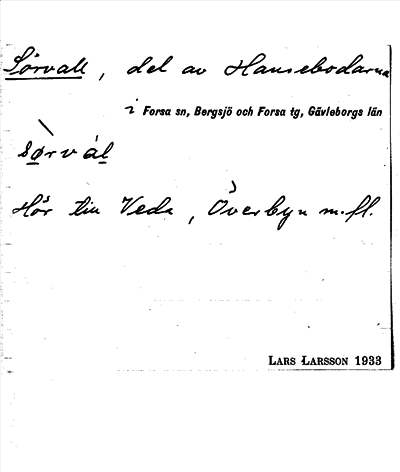 Sörvall, del av Hansebodarna
i Forsa sn, Bergsjö och Forsa tg, Gävleborgs län
sø̀rvál
Hör till Veda, Överbyn m.fl.
LARS LARSSON 1933